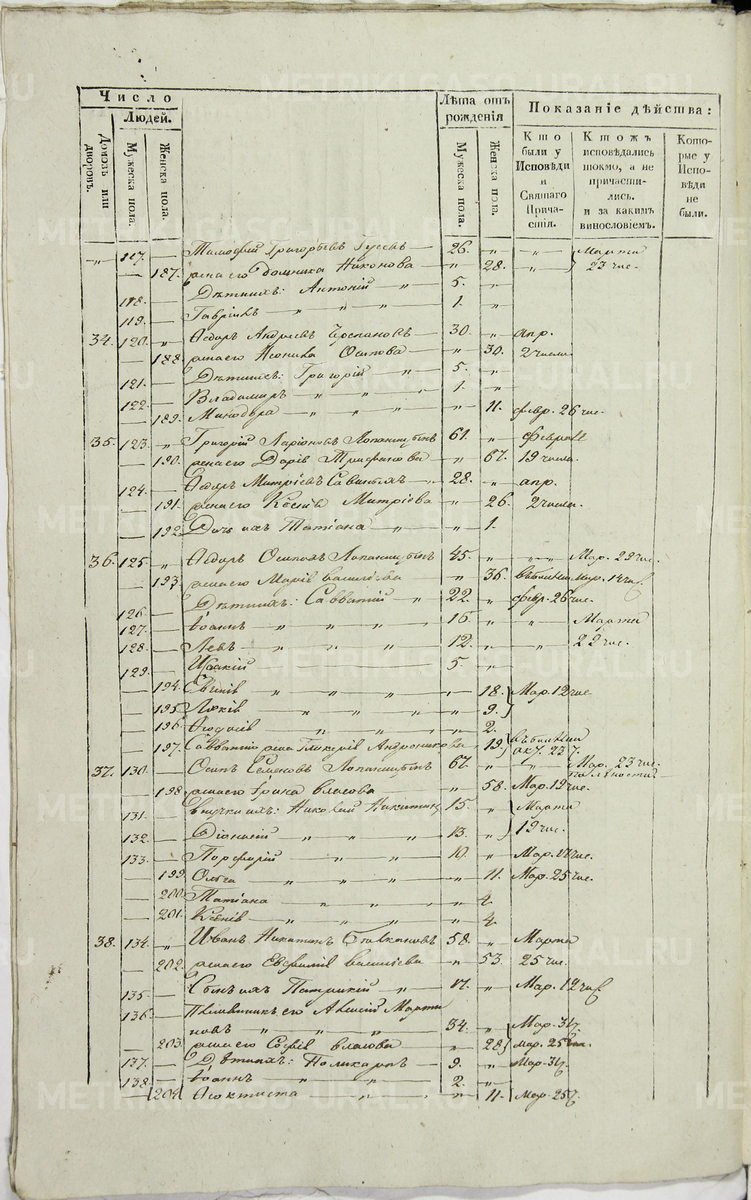 Число
Людей.
Домовъ или дворовъ.
Мужеска пола.
Женска пола.
Лѣта отъ рожденія
Мужеска пола.
Женска пола.
Показаніе дѣйства:
Кто были у Исповѣди и Святаго Причастія.
Ктожъ исповѣдались токмо, а не причастились. и за какимъ винословіемъ.
Которые у Исповѣди не были.
„ 117. Тимофей Григорьевъ Гусевъ 26. „ „ Марта
187. жена его Домника Никонова „ 28. „ 23 чис.
118. Дѣти ихъ: Антоній „ 5. „
119. Гавріилъ „ „ „ 1. „
34. 120. „ Ѳедоръ Андреевъ 30. „ апр.
188. жена его Осипова „ 30. 2 числа
121. Дѣти ихъ: Григорій „ 5. „
122. Владимиръ „ „ 1. „
189. Минодора „ „ „ „ 11. февр. 26 чис.
35. 123. „ Григорій Ларіоновъ Лопаницынъ 61. „ Февраля
190. жена его Дарія Трифонова „ 67. 19 числа
124. Ѳедоръ Митріевъ 28. „ апр.
191. жена его Ксенія Митріева „ 26. 2 числа
192. Дочь ихъ Татіана „ „ 1.
36. 125. „ Ѳедоръ Осиповъ Лопаницынъ 45. „ „ „ Мар. 23 чис.
193. жена его Марія Васильева „ 36. мар. 12 чис.
126. Дѣти ихъ: Савватій „ 22. „ февр. 26 чис.
127. Іоаннъ „ „ „ „ 16. „ „ Марта
128. Левъ „ „ „ „ 12. „ „ 22 чис.
129. Исакій 5. „
194. Евгенія „ „ „ „ „ 18. Мар. 12 чис
195. „ „ „ „ 9.
196. Ѳеодосія „ „ „ „ 2.
197. Савватія жена Гликерія Андроникова „ 19.
37. 130. Осипъ Семеновъ Лопаницынъ 67. „ „ „ Мар. 23 чис.
198. жена его Ирина Власова „ 58. Мар. 19 чис.
131. внучки ихъ: Николай Никитинъ 15. „ Марта
132. Діонисій „ „ „ 13. „ 19 чис.
133. Порфирій „ „ „ 10. „ Мар. 17 чис.
199. Ольга „ „ „ „ „ 11. Мар. 25 чис.
200. Татіана „ „ „ 4.
201. Ксенія „ „ „ „ 4.
38. 134. „ Иванъ Никитинъ 58. „ Марта
202. жена его Евфимія Васильева „ 53. 25 чис.
135. Сынъ ихъ Патрикій „ 17. „ Мар. 12 чис
136. Племянникъ его Алексій Марти
новъ „ „ „ „ 34. „ Мар. 31 ч.
203. жена его Софія Власова „ 28. мар. 25 чис.
137. Дѣти ихъ: Поликарпъ „ 9. „ Мар. 31 ч.
138. Іоаннъ „ „ „ 2. „
204. Ѳеоктиста „ „ „ „ 11. Мар. 25 ч.
METRIKI.GASO-URAL.RU